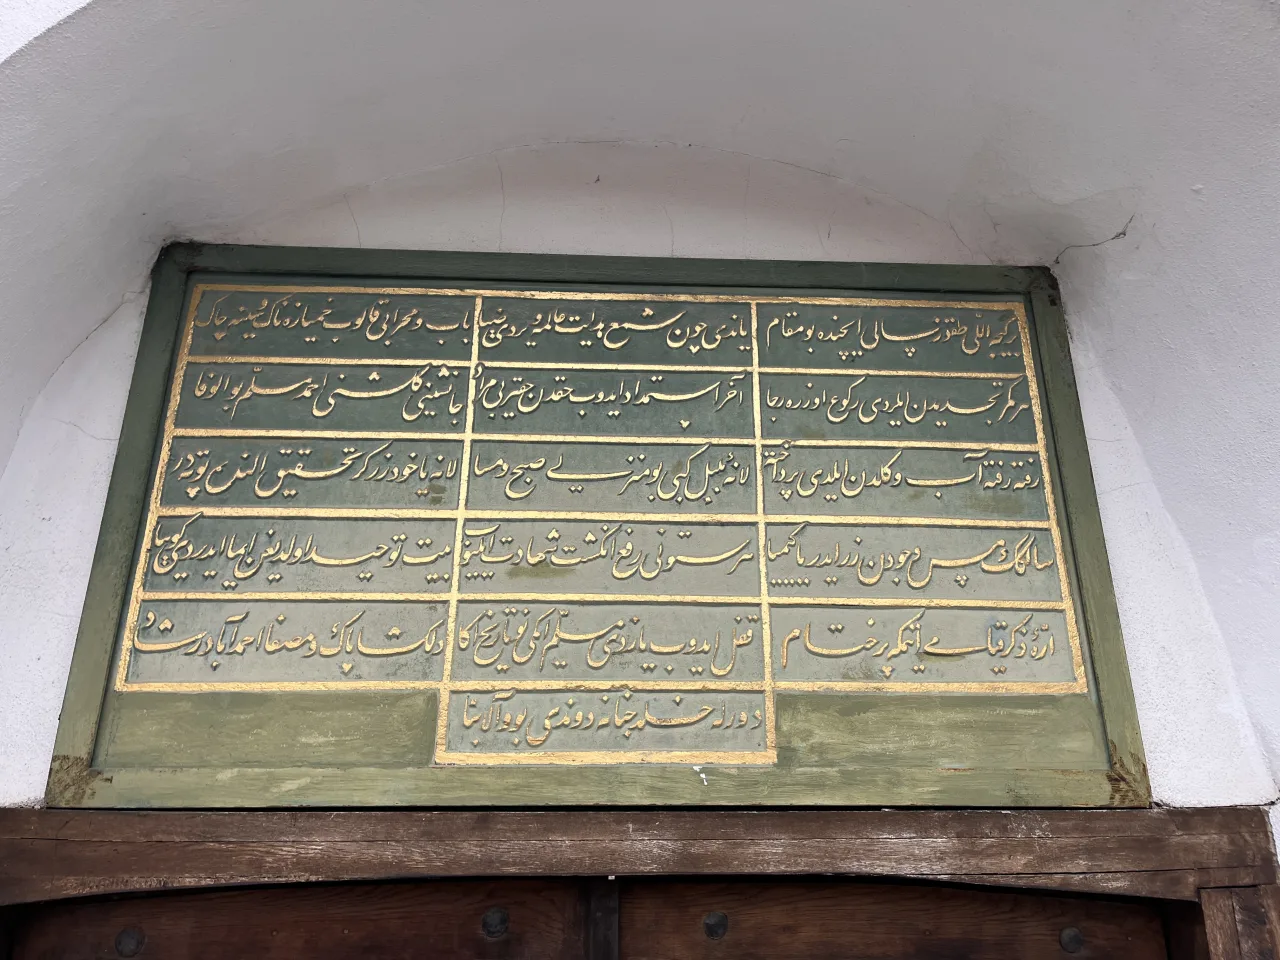 بیك اللی طقوز سالی ایچنده بو مقام
یاندی چون شمع هدایت عالمه ویردی ضیا
باب و محرابی قالوب خمیازه ناك و سینه چاك
هر مكرر تجدیدن ایلردی ركوع اوزره رجا
آخر استمداد ایدوب حقدن حقیر بی مراد
جانشینی گلشنی احمد مسلم بو الوفا
رفته رفته آب و گلدن ایلدی پرداخته
لانۀ بلبل كبی بو منزلی صبح و مسا
لانه یا خود زرگر تحقیق النده بوته در
سالكك مس وجودن زر ایدر یا كیمیا
هر ستونی رفع انگشت شهادت ایلیوب
بیت توحید اولدیغن ایما ایدردی گوییا
ارۀ ذكر قیامی ایتمكه پر ختام
قفل ایدوب یازدی مسلم ایكی نو تاریخ اكا
دلگشا پاك و مصفا احمد آباد رشاد
دورله خلد جنانه دوندی بو والا بنا